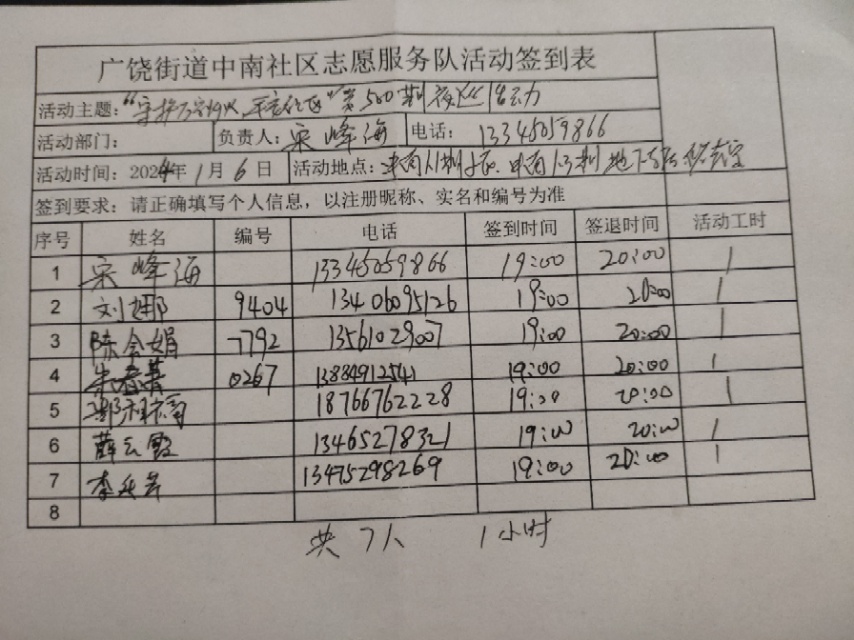 广饶街道中南社区志愿服务队活动签到表
活动主题：“守护万家灯火，平安社区”第500期夜巡活动
活动部门： 负责人：宋峰海 电话：13345059866
活动时间：2024年1月6日 活动地点：中南 期 中南 期地下
签到要求：请正确填写个人信息，以注册昵称、实名和编号为准
序号 姓名 编号 电话 签到时间 签退时间 活动工时
1 宋峰海 13345059866 19:00 20:00 1
2 刘娜 9404 13406095126 19:00 20:00 1
3 陈会娟 7792 13561029007 19:00 20:00 1
4 0267 13884912541 19:00 20:00 1
5 18766762228 19:00 20:00 1
6 薛云霞 13465278321 19:00 20:00 1
7 李 13475298269 19:00 20:00 1
8
共7人 1小时